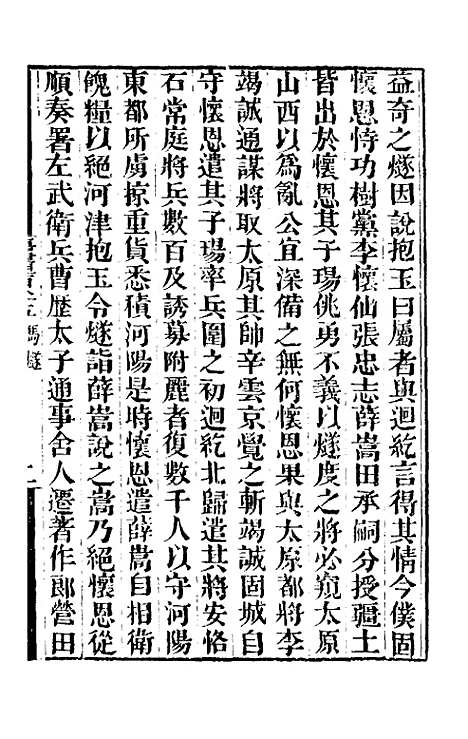 益奇之燧因說抱玉曰屬者與迴紇言得其情今僕固
懷恩恃功樹黨李懷仙張忠志薛嵩田承嗣分授疆土
皆出於懷恩其子瑒佻勇不義以燧度之將必窺太原
山西以爲亂公宜深備之無何懷恩果與太原都將李
竭誠通謀將取太原其帥辛雲京覺之斬竭誠固城自
守懷恩遣其子瑒率兵圍之初迴紇北歸遣其將安恪
石常庭將兵數百及誘募附麗者復數千人以守河陽
東都所虜掠重貨悉積河陽是時懷恩遣薛嵩自相衛
餽糧以絕河津抱玉令燧詣薛嵩說之嵩乃絕懷恩從
順奏署左武衛兵曹歷太子通事舍人遷著作郎營田
馬燧